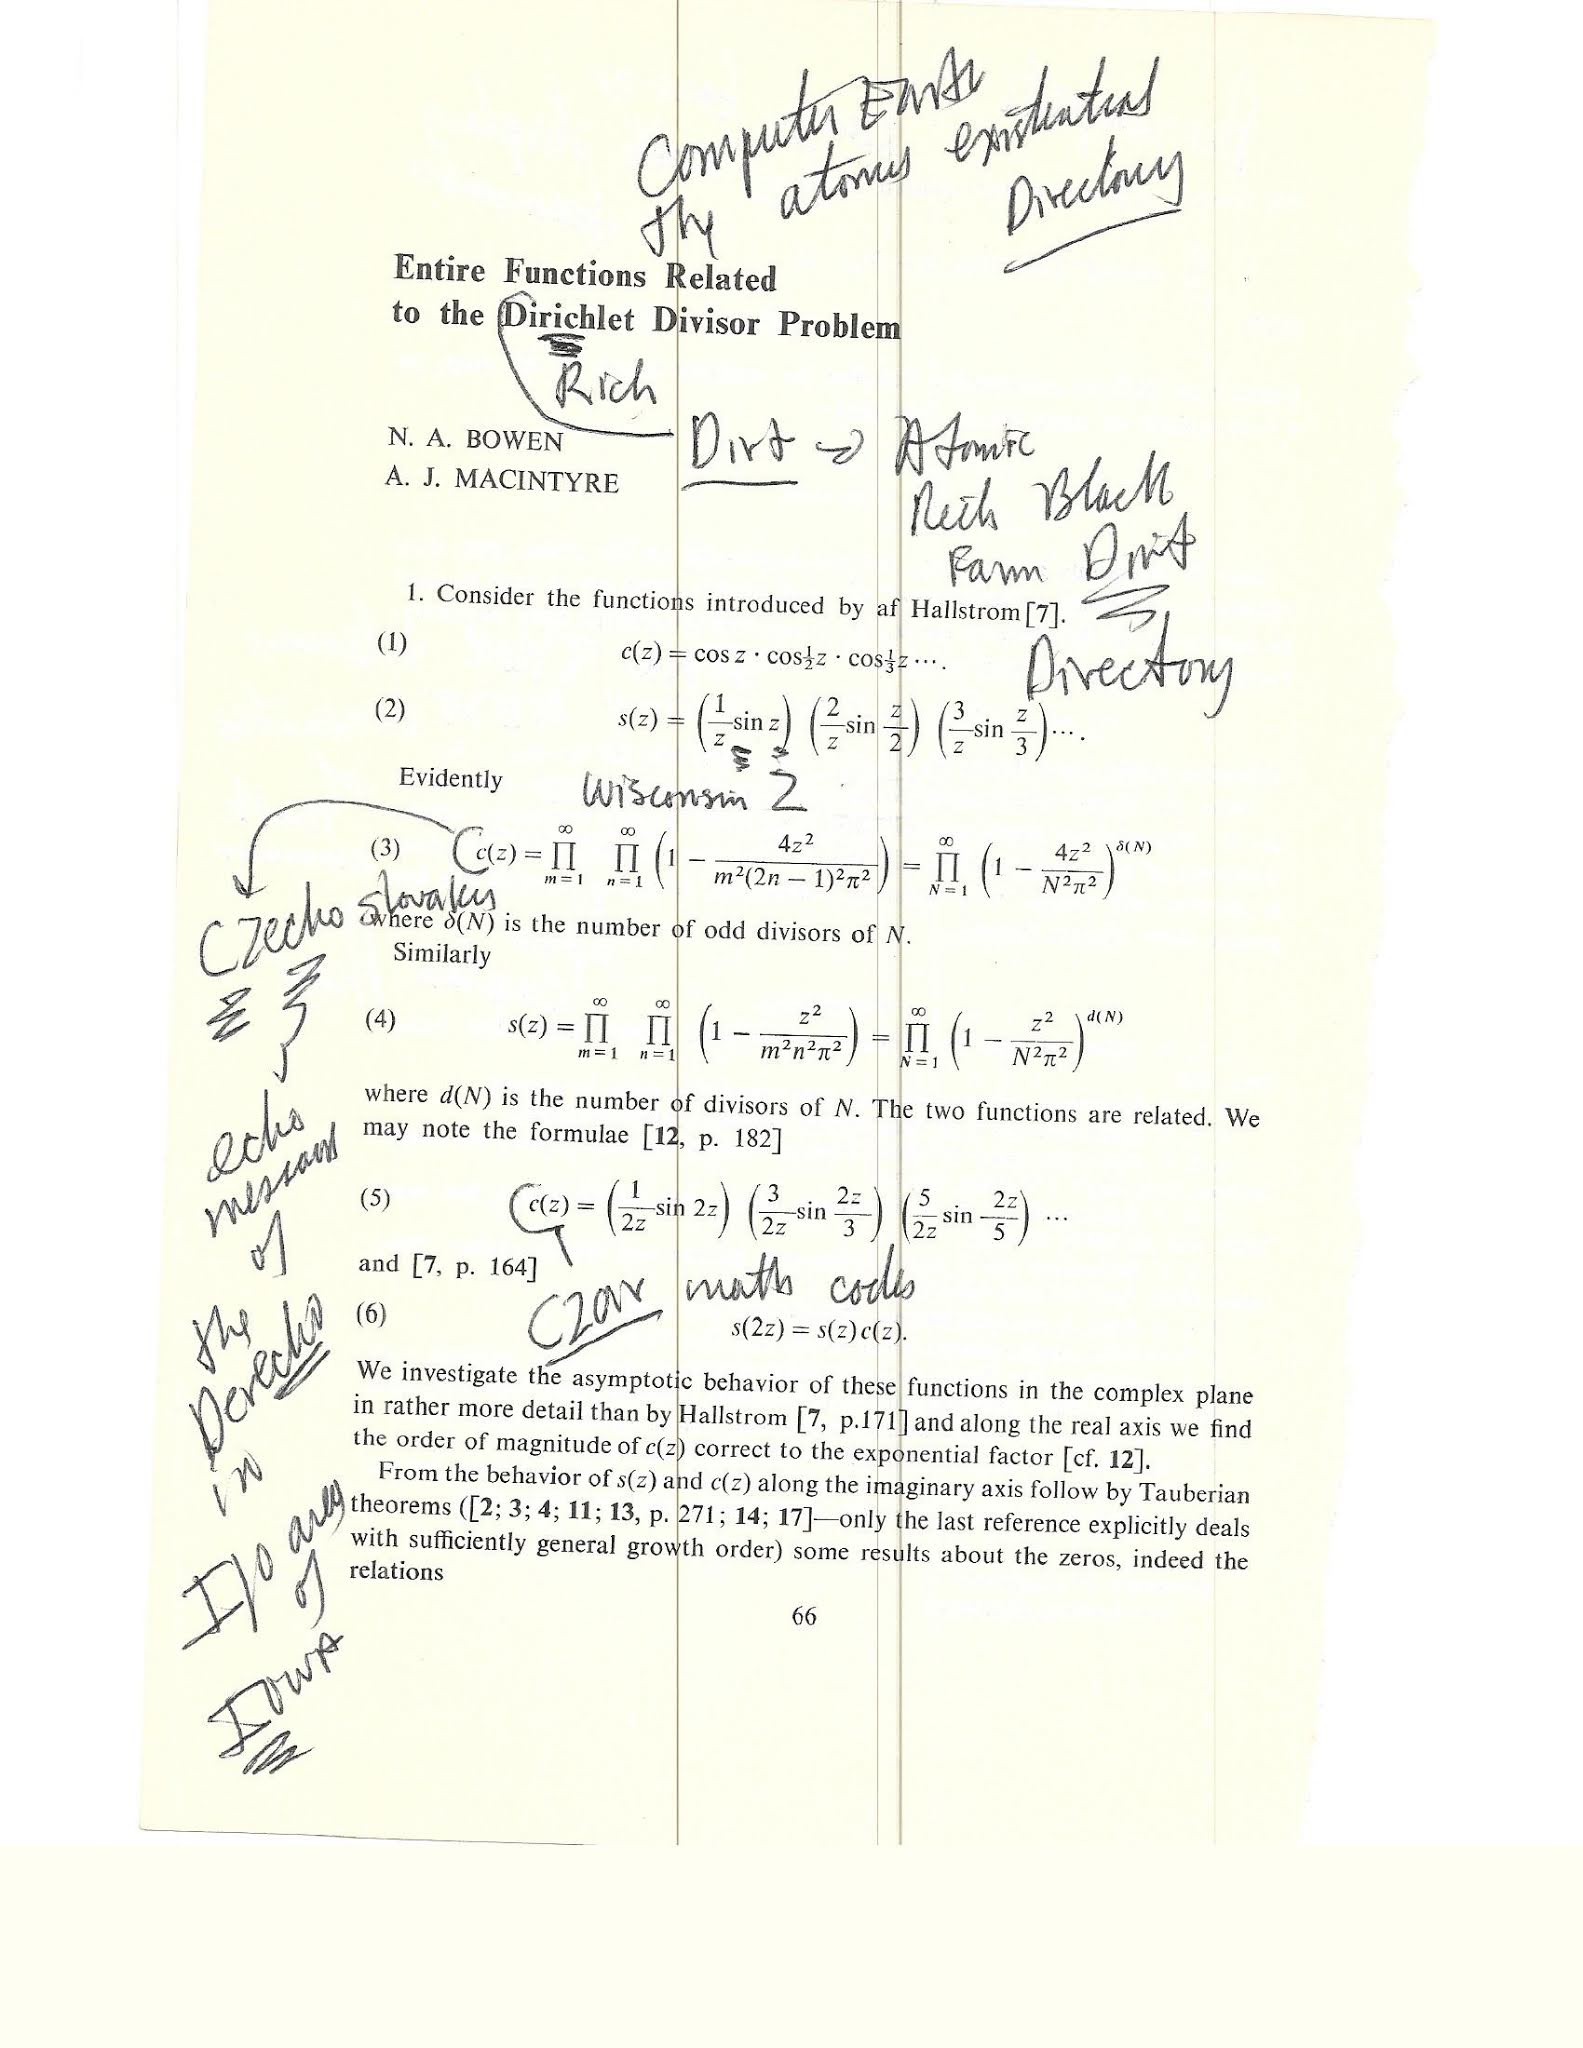 Computer Earth
the atomic existential
Directory
Entire Functions Related
to the Dirichlet Divisor Problem
Rich
N. A. BOWEN
A. J. MACINTYRE
Dirt → Atomic
Rich Black
Farm Dirt
Directory
1. Consider the functions introduced by af Hallstrom [7].
(1) c(z) = cos z · cos ½z · cos ⅓z ⋯.
(2) s(z) = (1/z sin z) (2/z sin z/2) (3/z sin z/3) ⋯.
Evidently
Wisconsin Z
(3) c(z) = ∏_{m=1}^{∞} ∏_{n=1}^{∞} (1 − 4z²/(m²(2n − 1)²π²)) = ∏_{N=1}^{∞} (1 − 4z²/(N²π²))^{δ(N)}
Czecho slovaky
where δ(N) is the number of odd divisors of N.
Similarly
(4) s(z) = ∏_{m=1}^{∞} ∏_{n=1}^{∞} (1 − z²/(m²n²π²)) = ∏_{N=1}^{∞} (1 − z²/(N²π²))^{d(N)}
where d(N) is the number of divisors of N. The two functions are related. We
may note the formulae [12, p. 182]
(5) c(z) = (1/2z sin 2z) (3/2z sin 2z/3) (5/2z sin 2z/5) ⋯
and [7, p. 164]
Czar math codes
(6) s(2z) = s(z)c(z).
We investigate the asymptotic behavior of these functions in the complex plane
in rather more detail than by Hallstrom [7, p.171] and along the real axis we find
the order of magnitude of c(z) correct to the exponential factor [cf. 12].
From the behavior of s(z) and c(z) along the imaginary axis follow by Tauberian
theorems ([2; 3; 4; 11; 13, p. 271; 14; 17]—only the last reference explicitly deals
with sufficiently general growth order) some results about the zeros, indeed the
relations
66
echo
message
of
the
Derecho
in
I/O area
of
IOWA